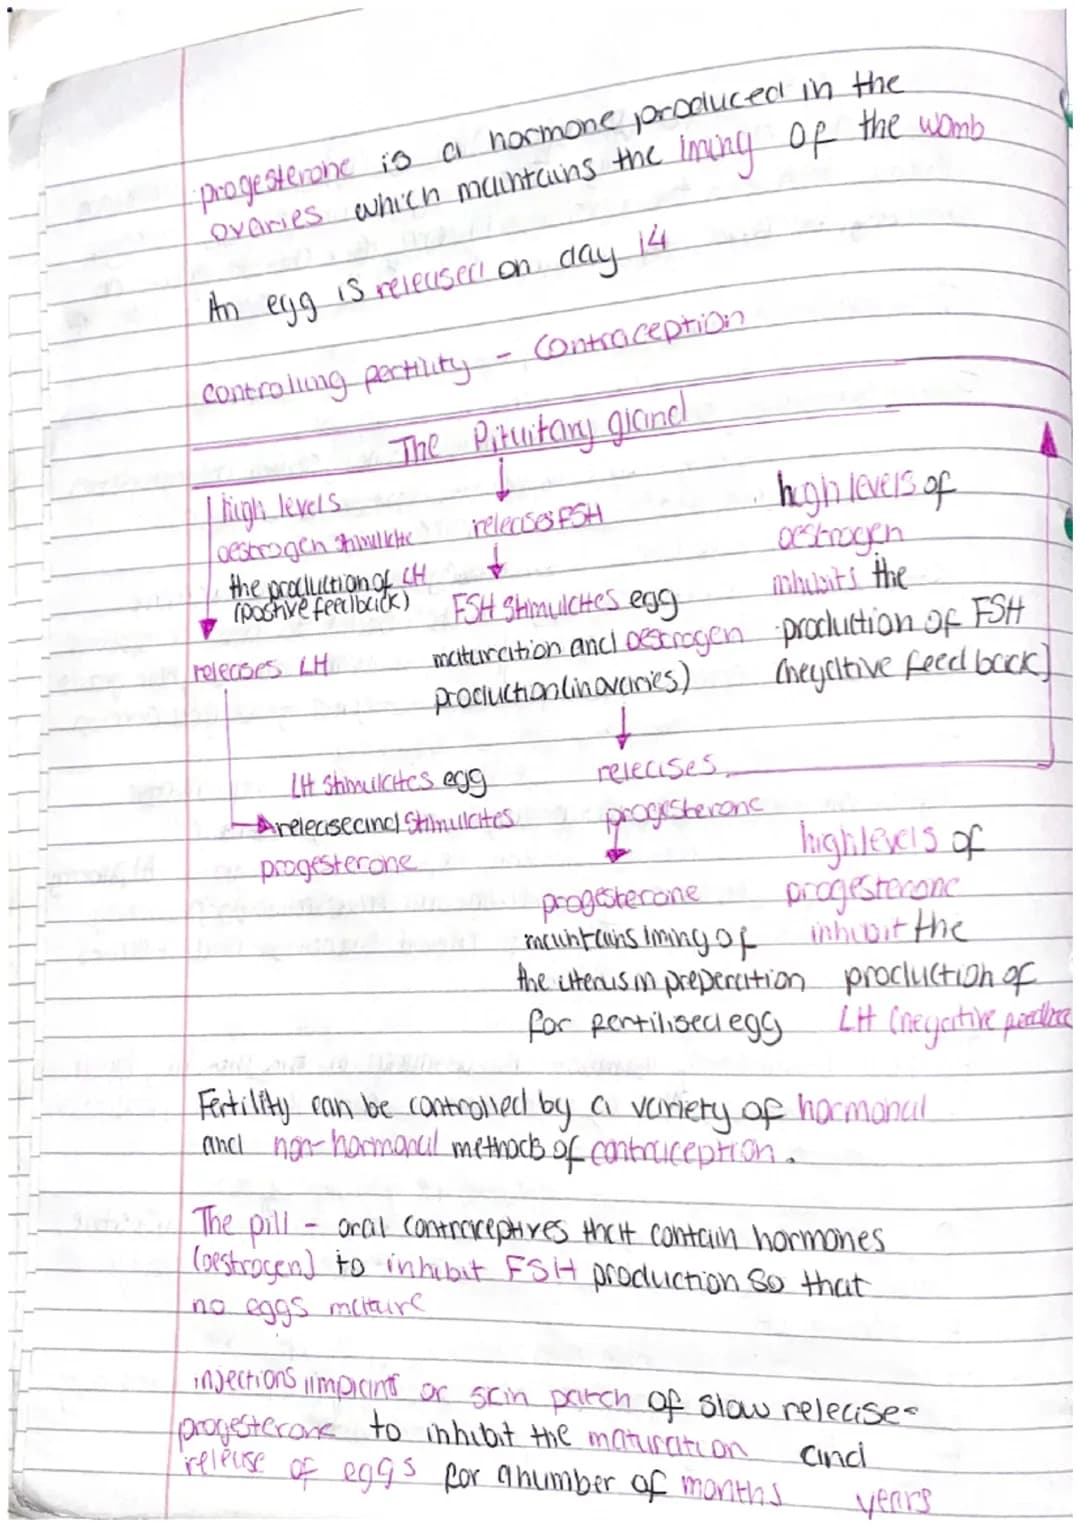 progesterone is a hormone produced in the
ovaries which maintains the lining of the womb
An egg is released on day 14
controlling fertility - Contraception
The Pituitary gland
high levels
oestrogen stimulate
the production of LH
(positive feedback)
releases LH
releases FSH
FSH Stimulates egg
maturation and oestrogen
production (in ovaries)
high levels of
oestrogen
inhibits the
production of FSH
(negative feedback)
LH Stimulates egg
release and Stimulates
progesterone
releases
progesterone
progesterone
maintains lining of
the uterus in preperation
for fertilised egg
high levels of
progesterone
inhibit the
production of
LH (negative feedback
Fertility can be controlled by a variety of hormonal
and non-hormonal methods of contraception.
The pill - oral contraceptives that contain hormones
(oestrogen) to inhibit FSH production so that
no eggs mature
injections implant or skin patch of slow release
progesterone to inhibit the maturation and
release of eggs for a number of months years